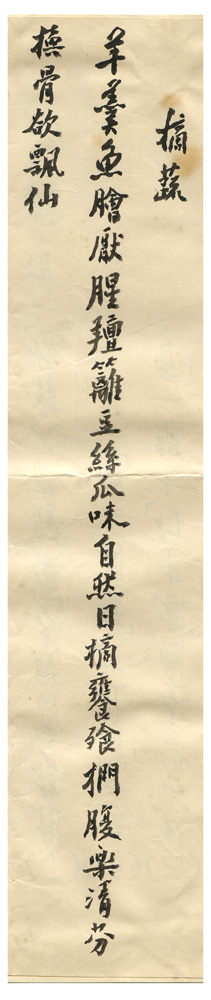 摘蔬
羊羹魚膾厭腥羶籬豆絲瓜味自然日摘饔飱捫腹樂清芬
換骨欲飄仙